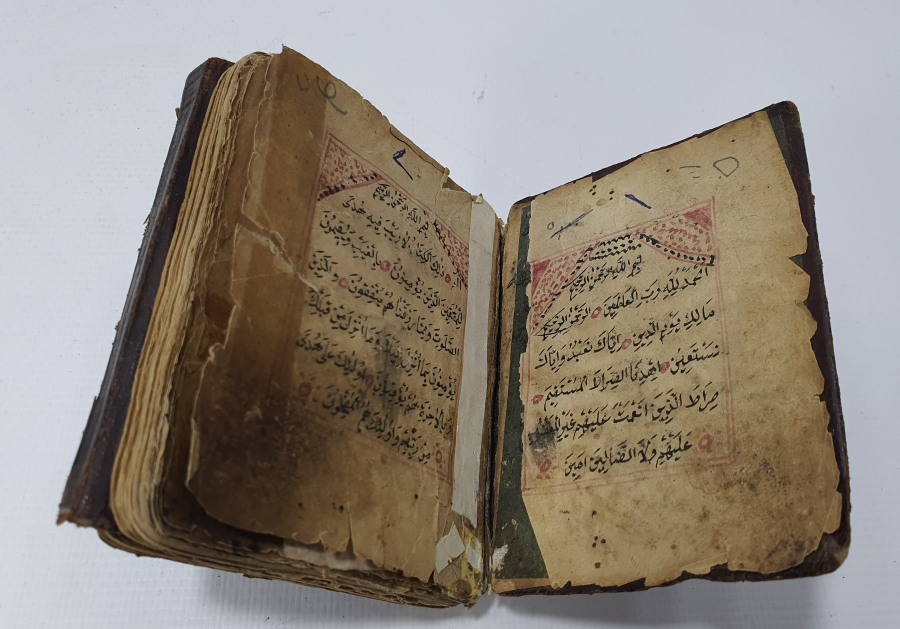 ١
بسم الله الرحمن الرحيم
الحمد لله رب العلمين الرحمن الرحيم
مالك يوم الدين اياك نعبد واياك
نستعين اهدنا الصراط المستقيم
صراط الذين انعمت عليهم غير
عليهم ولا الضالين امين
٢
بسم الله الرحمن الرحيم
الم ذلك الكتاب لا ريب فيه هدى
للمتقين الذين يؤمنون بالغيب ويقيمون
الصلوة ومما رزقناهم ينفقون والذين
يؤمنون بما انزل اليك وما انزل من قبلك
وبالاخرة هم يوقنون اولئك على هدى
من ربهم واولئك هم المفلحون